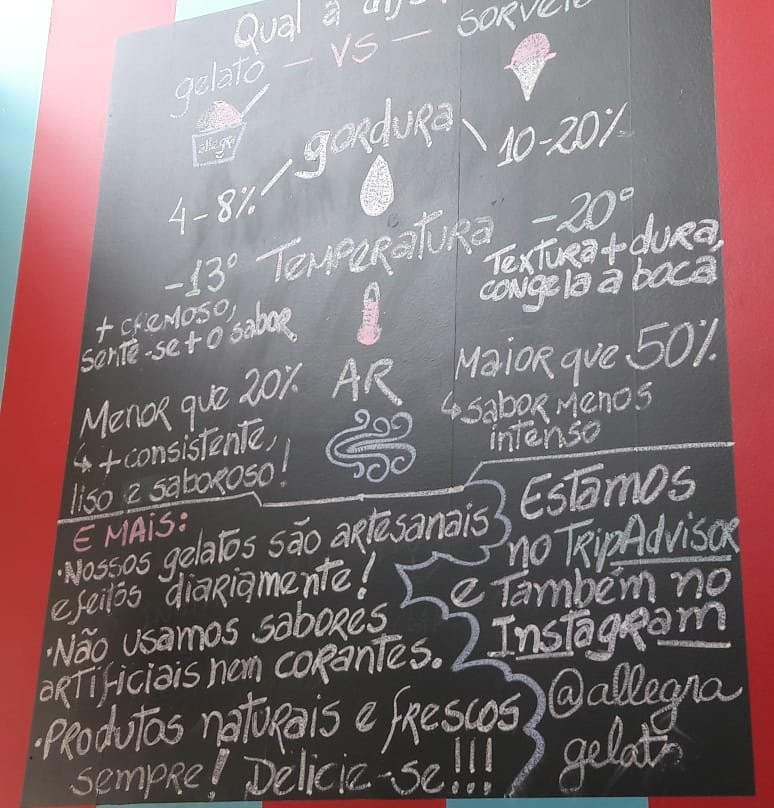 Qual a
gelato - VS - SORVETE
allegra
GORDURA
4-8%
10-20%
TEMPERATURA
-13°
+ CREMOSO,
sente-se + o sabor
-20°
Textura + dura,
congela a boca
AR
Menor que 20%
↳ + consistente,
liso e saboroso!
Maior que 50%
↳ SABOR MENOS
intenso
E MAIS:
• Nossos gelatos são artesanais
e feitos diariamente!
• Não usamos sabores
artificiais nem corantes.
• Produtos naturais e frescos
sempre! Delicie-se!!!
Estamos
no TripAdvisor
e Também no
Instagram
@allegra
gelato